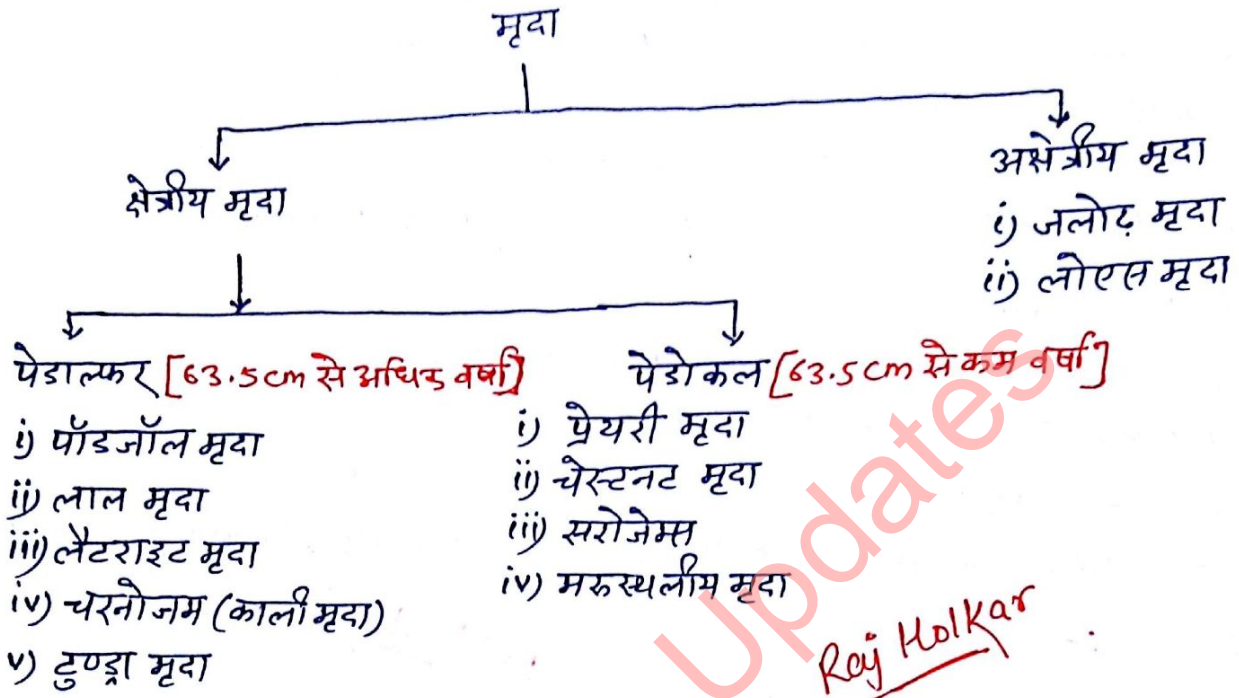 मृदा
क्षेत्रीय मृदा
अक्षेत्रीय मृदा
i) जलोढ़ मृदा
ii) लोएस मृदा
पेडाल्फर [63.5cm से अधिक वर्षा]
i) पॉडजॉल मृदा
ii) लाल मृदा
iii) लैटराइट मृदा
iv) चरनोजम (काली मृदा)
v) टुण्ड्रा मृदा
पेडोकल [63.5cm से कम वर्षा]
i) प्रेयरी मृदा
ii) चेस्टनट मृदा
iii) सरोजेम्स
iv) मरुस्थलीय मृदा
Updates
Raj Holkar